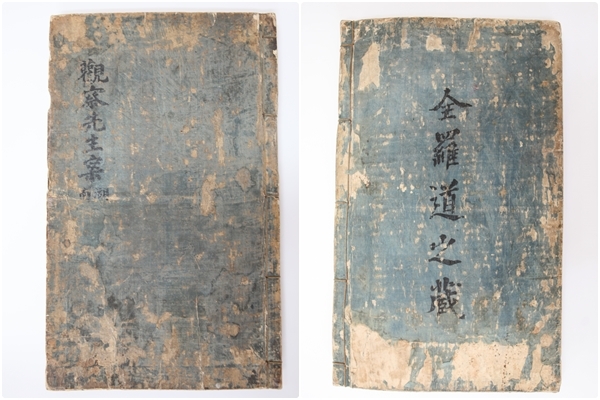 觀察先生案
湖南
全羅道之藏